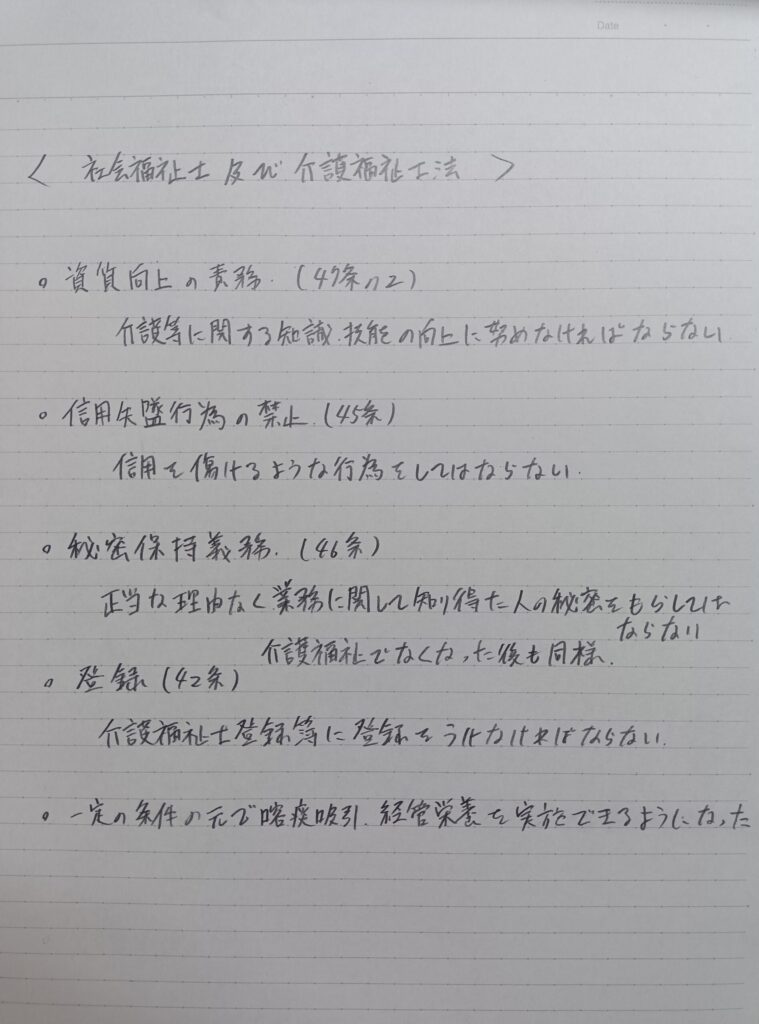 Date
〈 社会福祉士 及び 介護福祉士法 〉
○ 資質向上の責務.（47条の2）
介護等に関する知識.技能の向上に努めなければならない
○ 信用失墜行為の禁止.（45条）
信用を傷けるような行為をしてはならない.
○ 秘密保持義務.（46条）
正当な理由なく業務に関して知り得た人の秘密をもらしては
ならない
介護福祉でなくなった後も同様.
○ 登録（42条）
介護福祉士登録簿に登録をうけなければならない.
○ 一定の条件の元で喀痰吸引.経管栄養を実施できるようになった